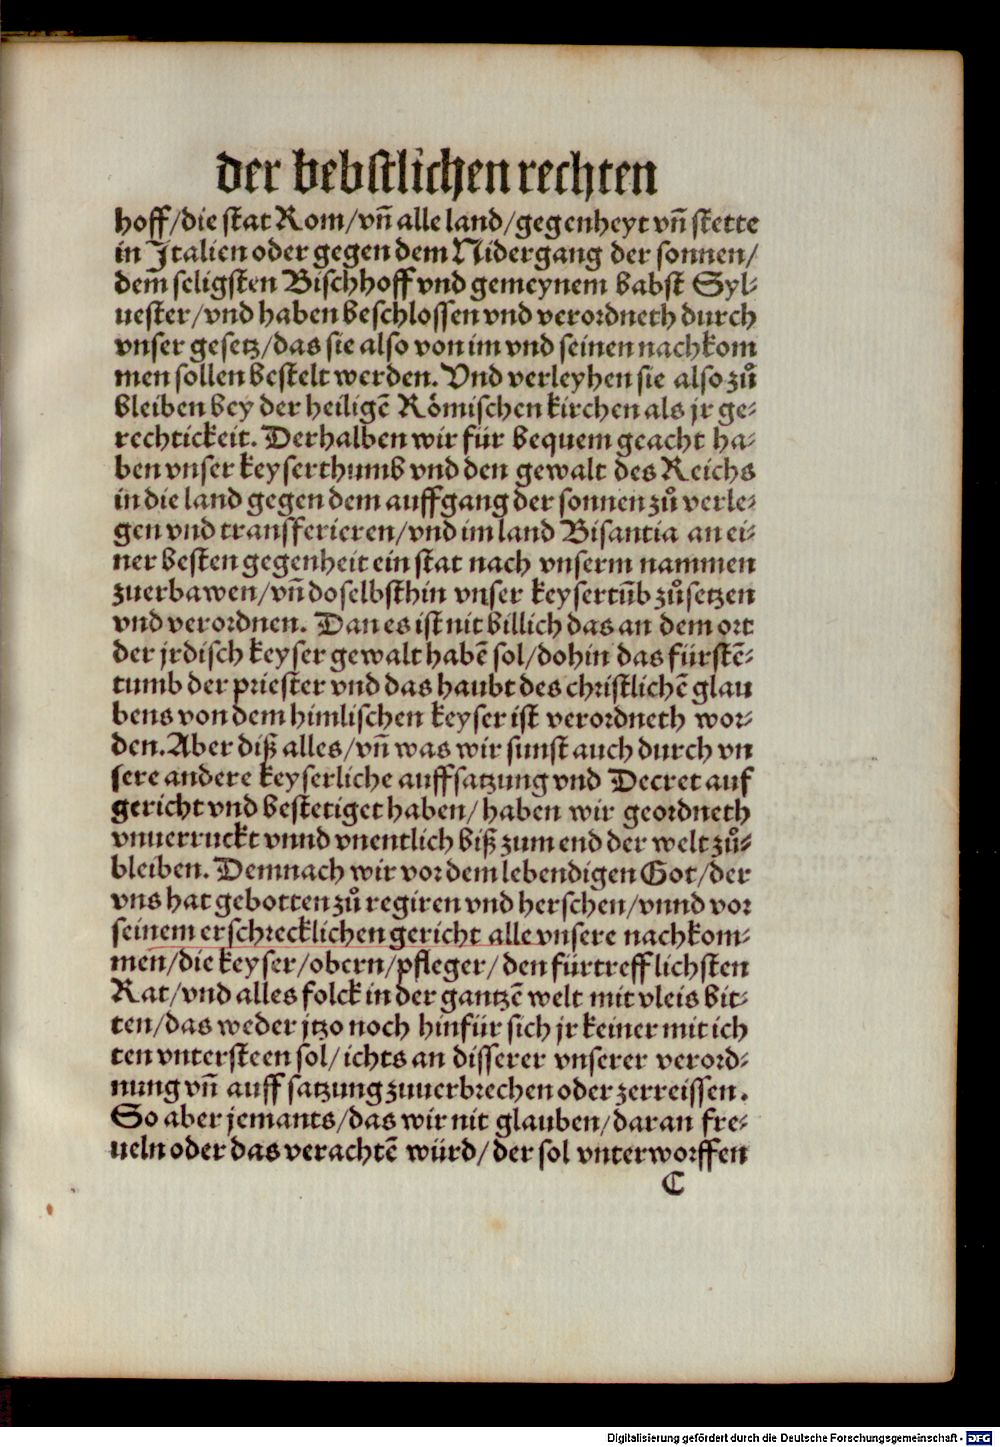 der bebstlichen rechten
hoff/die stat Rom/vñ alle land/gegenheyt vñ stette
in Italien oder gegen dem Nidergang der sonnen/
dem̃ seligsten Bischhoff vnd gemeynem babst Syl⸗
uester/vnd haben beschlossen vnd verordneth durch
vnser gesetz/das sie also von im vnd seinen nachkom
men sollen bestelt werden. Vnd verleyhen sie also zů
bleiben bey der heiligẽ Rômischen kirchen als jr ge⸗
rechtickeit. Derhalben wir für bequem geacht ha⸗
ben vnser keyserthumb vnd den gewalt des Reichs
in die land gegen dem auffgang der sonnen zů verle⸗
gen vnd transferieren/vnd im land Bisantia an ei⸗
ner besten gegenheit ein stat nach vnserm nammen
zuerbawen/vñ doselbsthin vnser keysertũb zůsetzen
vnd verordnen. Dan es ist nit billich das an dem ort
der jrdisch keyser gewalt habẽ sol/dohin das fürstẽ⸗
tumb der priester vnd das haubt des christlichẽ glau
bens von dem himlischen keyser ist verordneth wor⸗
den. Aber diß alles/vñ was wir sunst auch durch vn
sere andere keyserliche auffsatzung vnd Decret auf
gericht vnd bestetiget haben/haben wir geordneth
vnuerruckt vnnd vnentlich biß zum end der welt zů⸗
bleiben. Demnach wir vor dem lebendigen Got/der
vns hat gebotten zů regiren vnd herschen/vnnd vor
seinem erschrecklichen gericht alle vnsere nachkom⸗
men/die keyser/obern/pfleger/den fürtrefflichsten
Rat/vnd alles folck in der gantzẽ welt mit vleis bit⸗
ten/das weder jtzo noch hinfür sich jr keiner mit ich
ten vntersteen sol/ichts an disserer vnserer verord⸗
nung vñ auffsatzung zuuerbrechen oder zerreissen.
So aber jemants/das wir nit glauben/daran fre⸗
ueln oder das verachtẽ würd/der sol vnterworffen
C
Digitalisierung gefördert durch die Deutsche Forschungsgemeinschaft - DFG